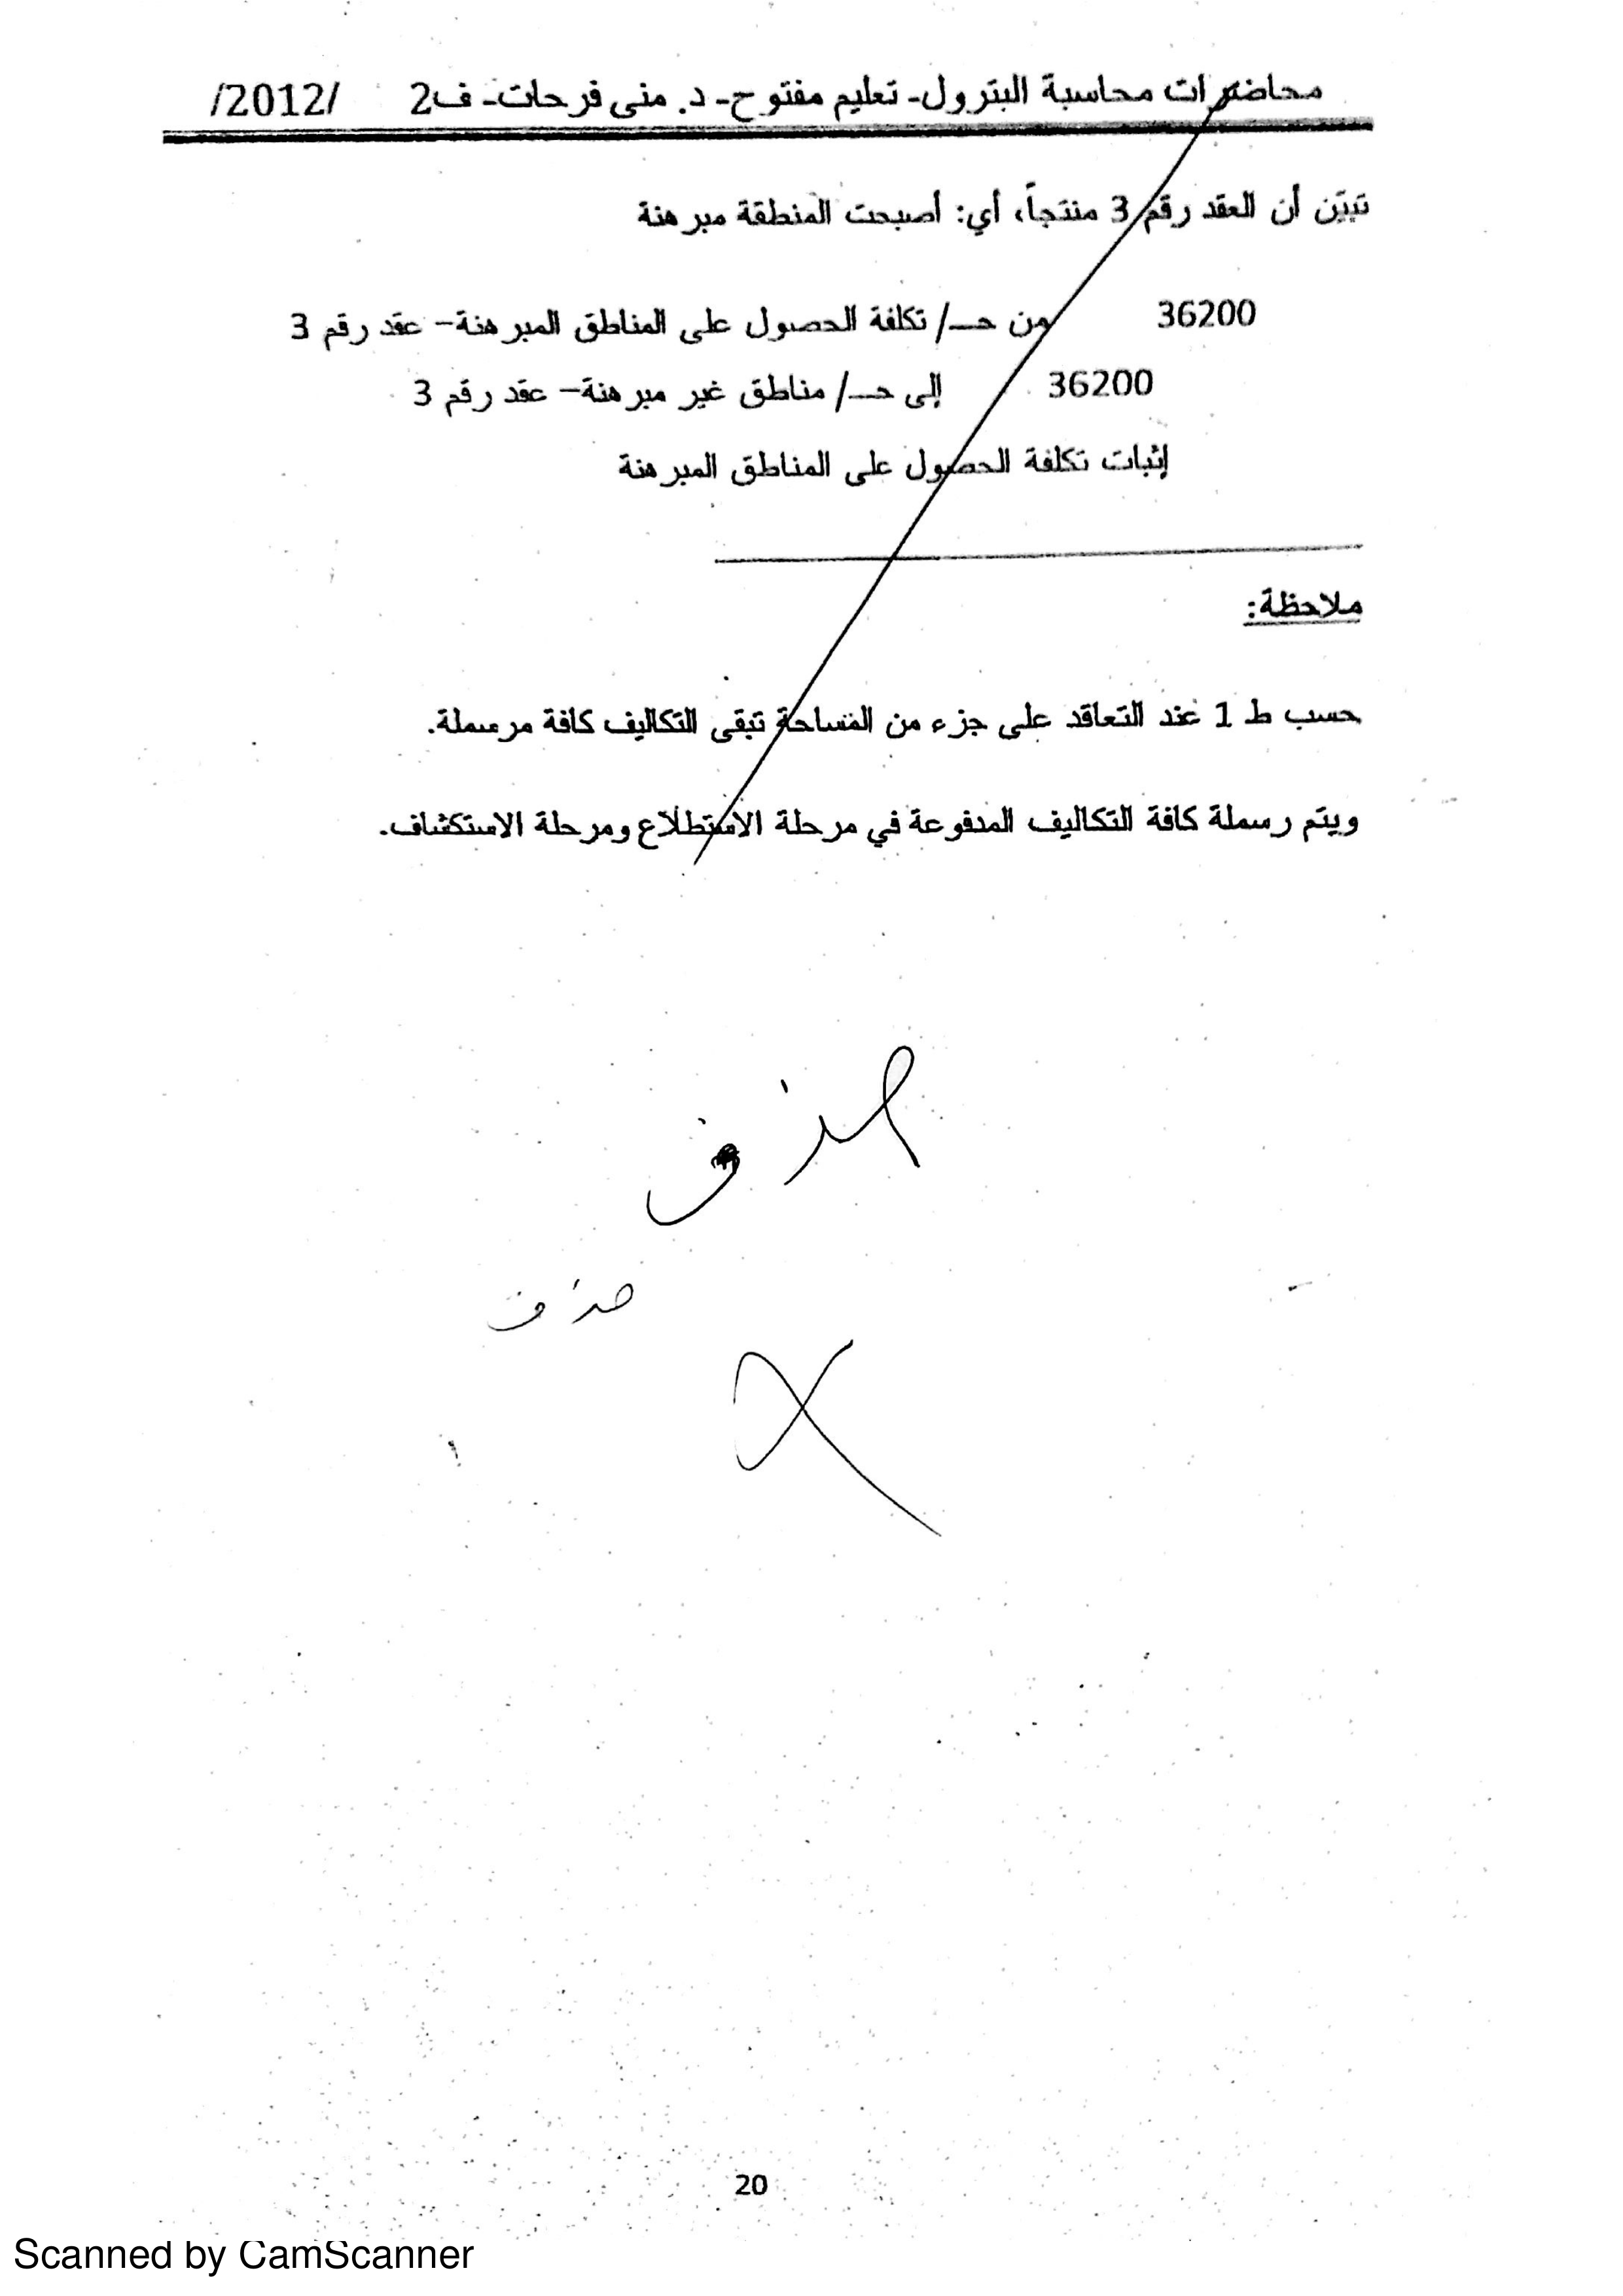 محاضرات محاسبة البترول- تعليم مفتوح- د. منى فرحات- ف2 /2012/
تبيّن أن العقد رقم 3 منتجاً، أي: أصبحت المنطقة مبرهنة
36200 من حـ/ تكلفة الحصول على المناطق المبرهنة- عقد رقم 3
36200 إلى حـ/ مناطق غير مبرهنة- عقد رقم 3
إثبات تكلفة الحصول على المناطق المبرهنة
ملاحظة:
حسب ط 1 عند التعاقد على جزء من المساحة تبقى التكاليف كافة مرسملة.
ويتم رسملة كافة التكاليف المدفوعة في مرحلة الاستطلاع ومرحلة الاستكشاف.
حذف
حذف
20
Scanned by CamScanner